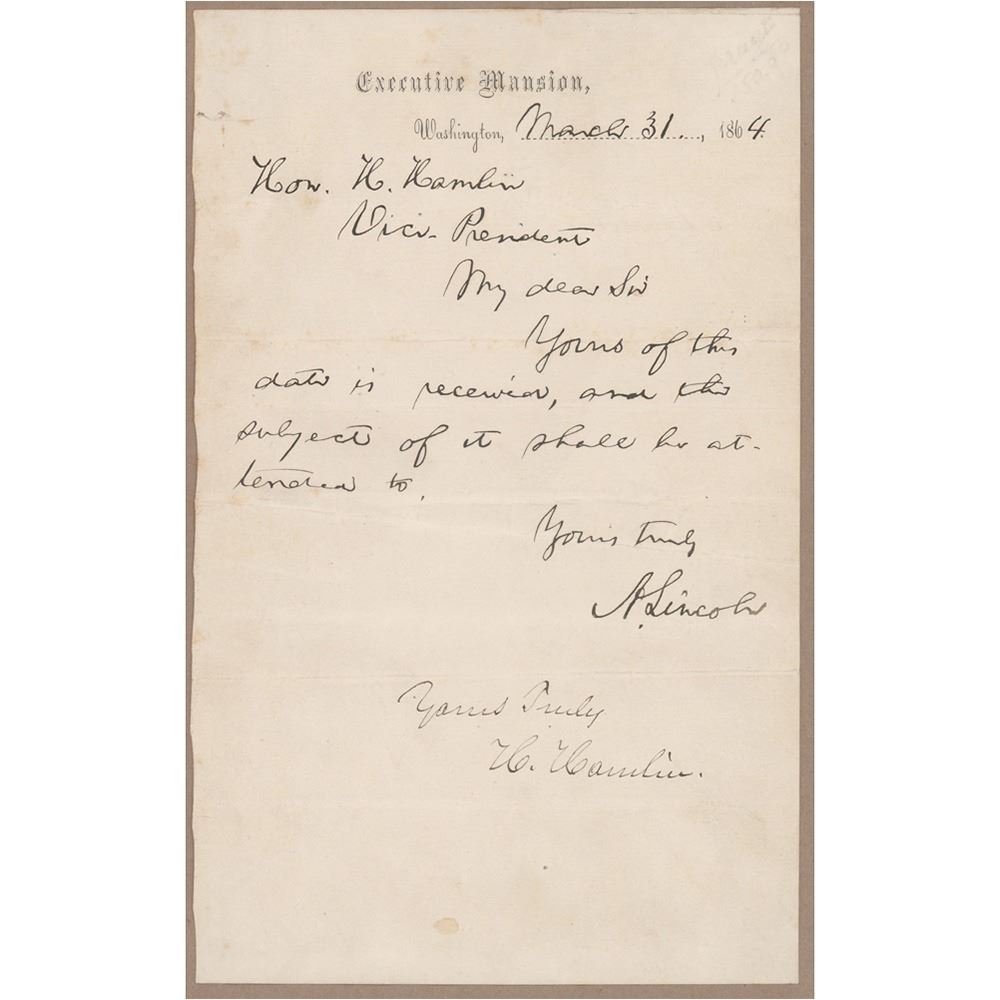 Executive Mansion,
Washington, March 31., 1864.
Hon. H. Hamlin
Vice-President
My dear Sir
Yours of this
date is received, and the
subject of it shall be at-
tended to.
Yours truly
A. Lincoln
Yours Truly
H. Hamlin.